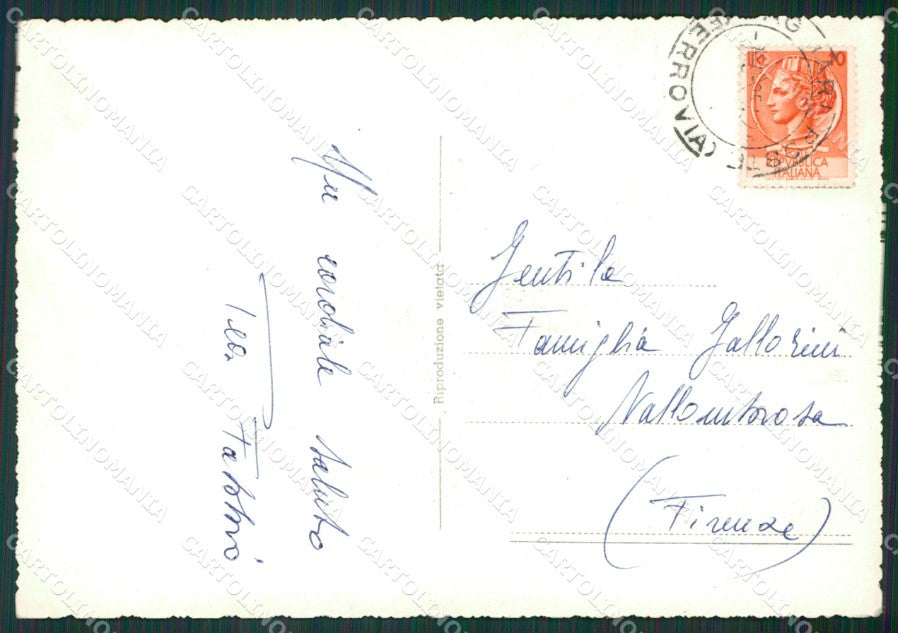 Un cordiale saluto
Riproduzione vietata
Gentile
Famiglia Gallorini
Vallombrosa
(Firenze)
(FERROVIA)
10
REPUBBLICA
ITALIANA
CARTOLINOMANIA